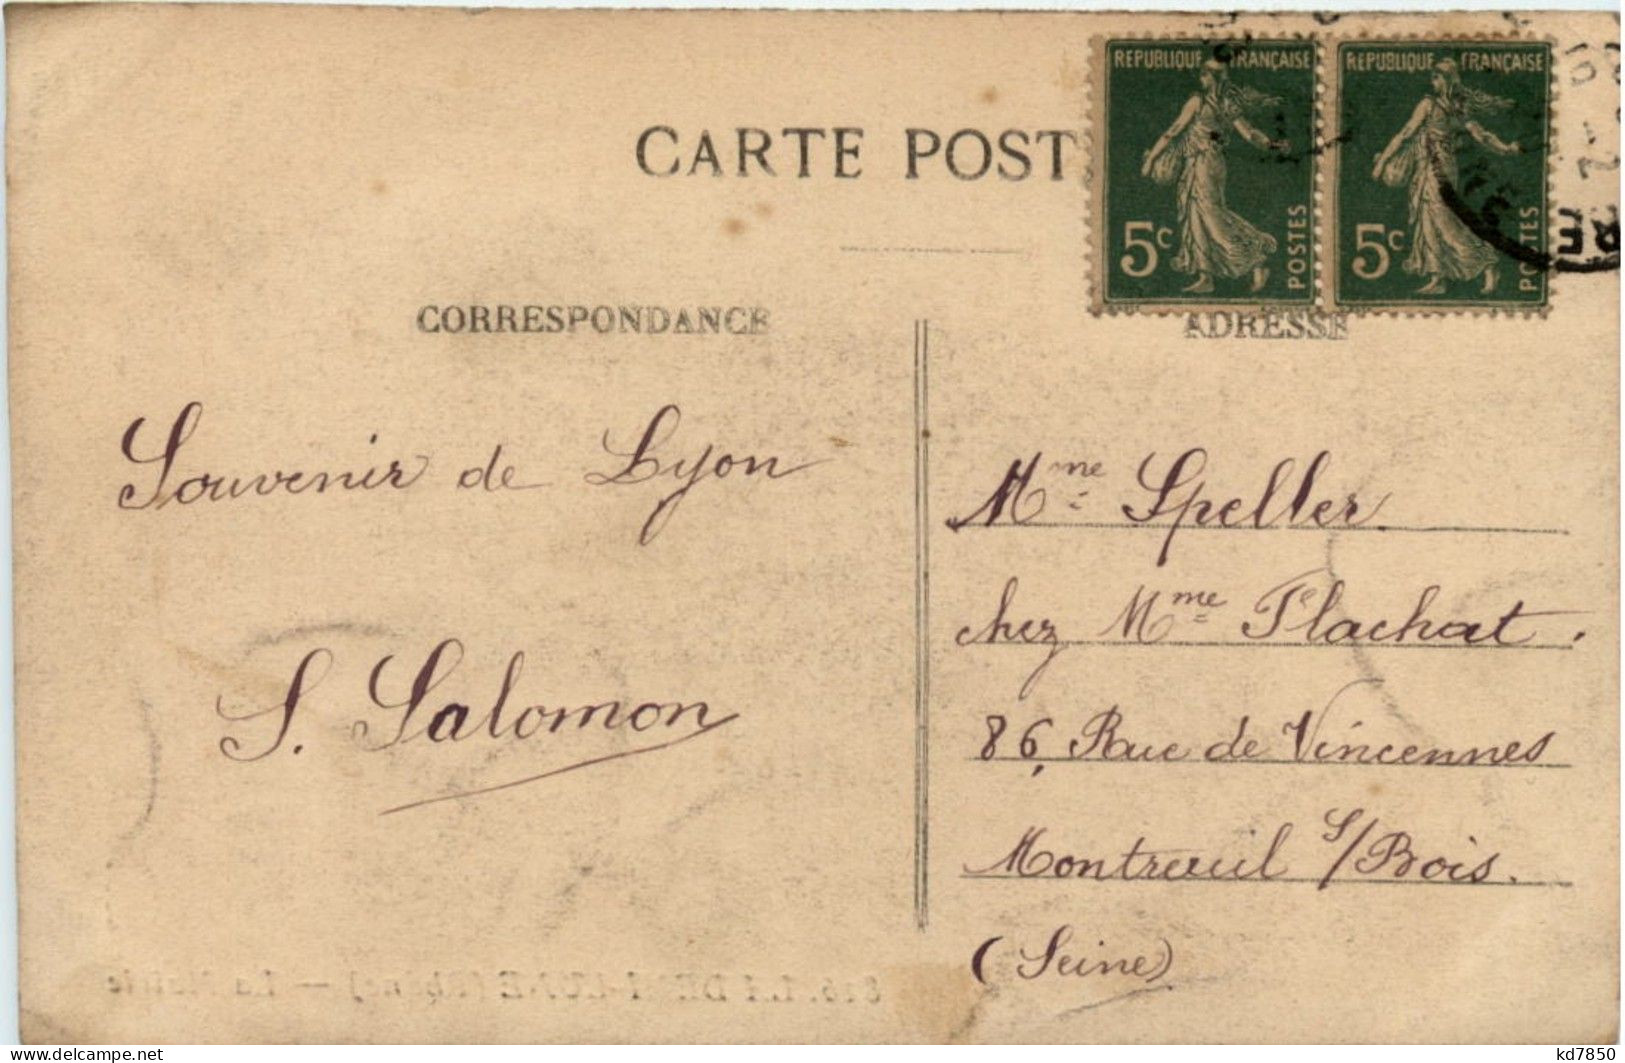 CARTE POST
REPUBLIQUE FRANÇAISE
5c
POSTES
REPUBLIQUE FRANÇAISE
5c
POSTES
CORRESPONDANCE
ADRESSE
Souvenir de Lyon
S. Salomon
Mme Speller
chez Mme Plachat.
86, Rue de Vincennes
Montreuil s/Bois.
(Seine)
delcampe.net
kd7850